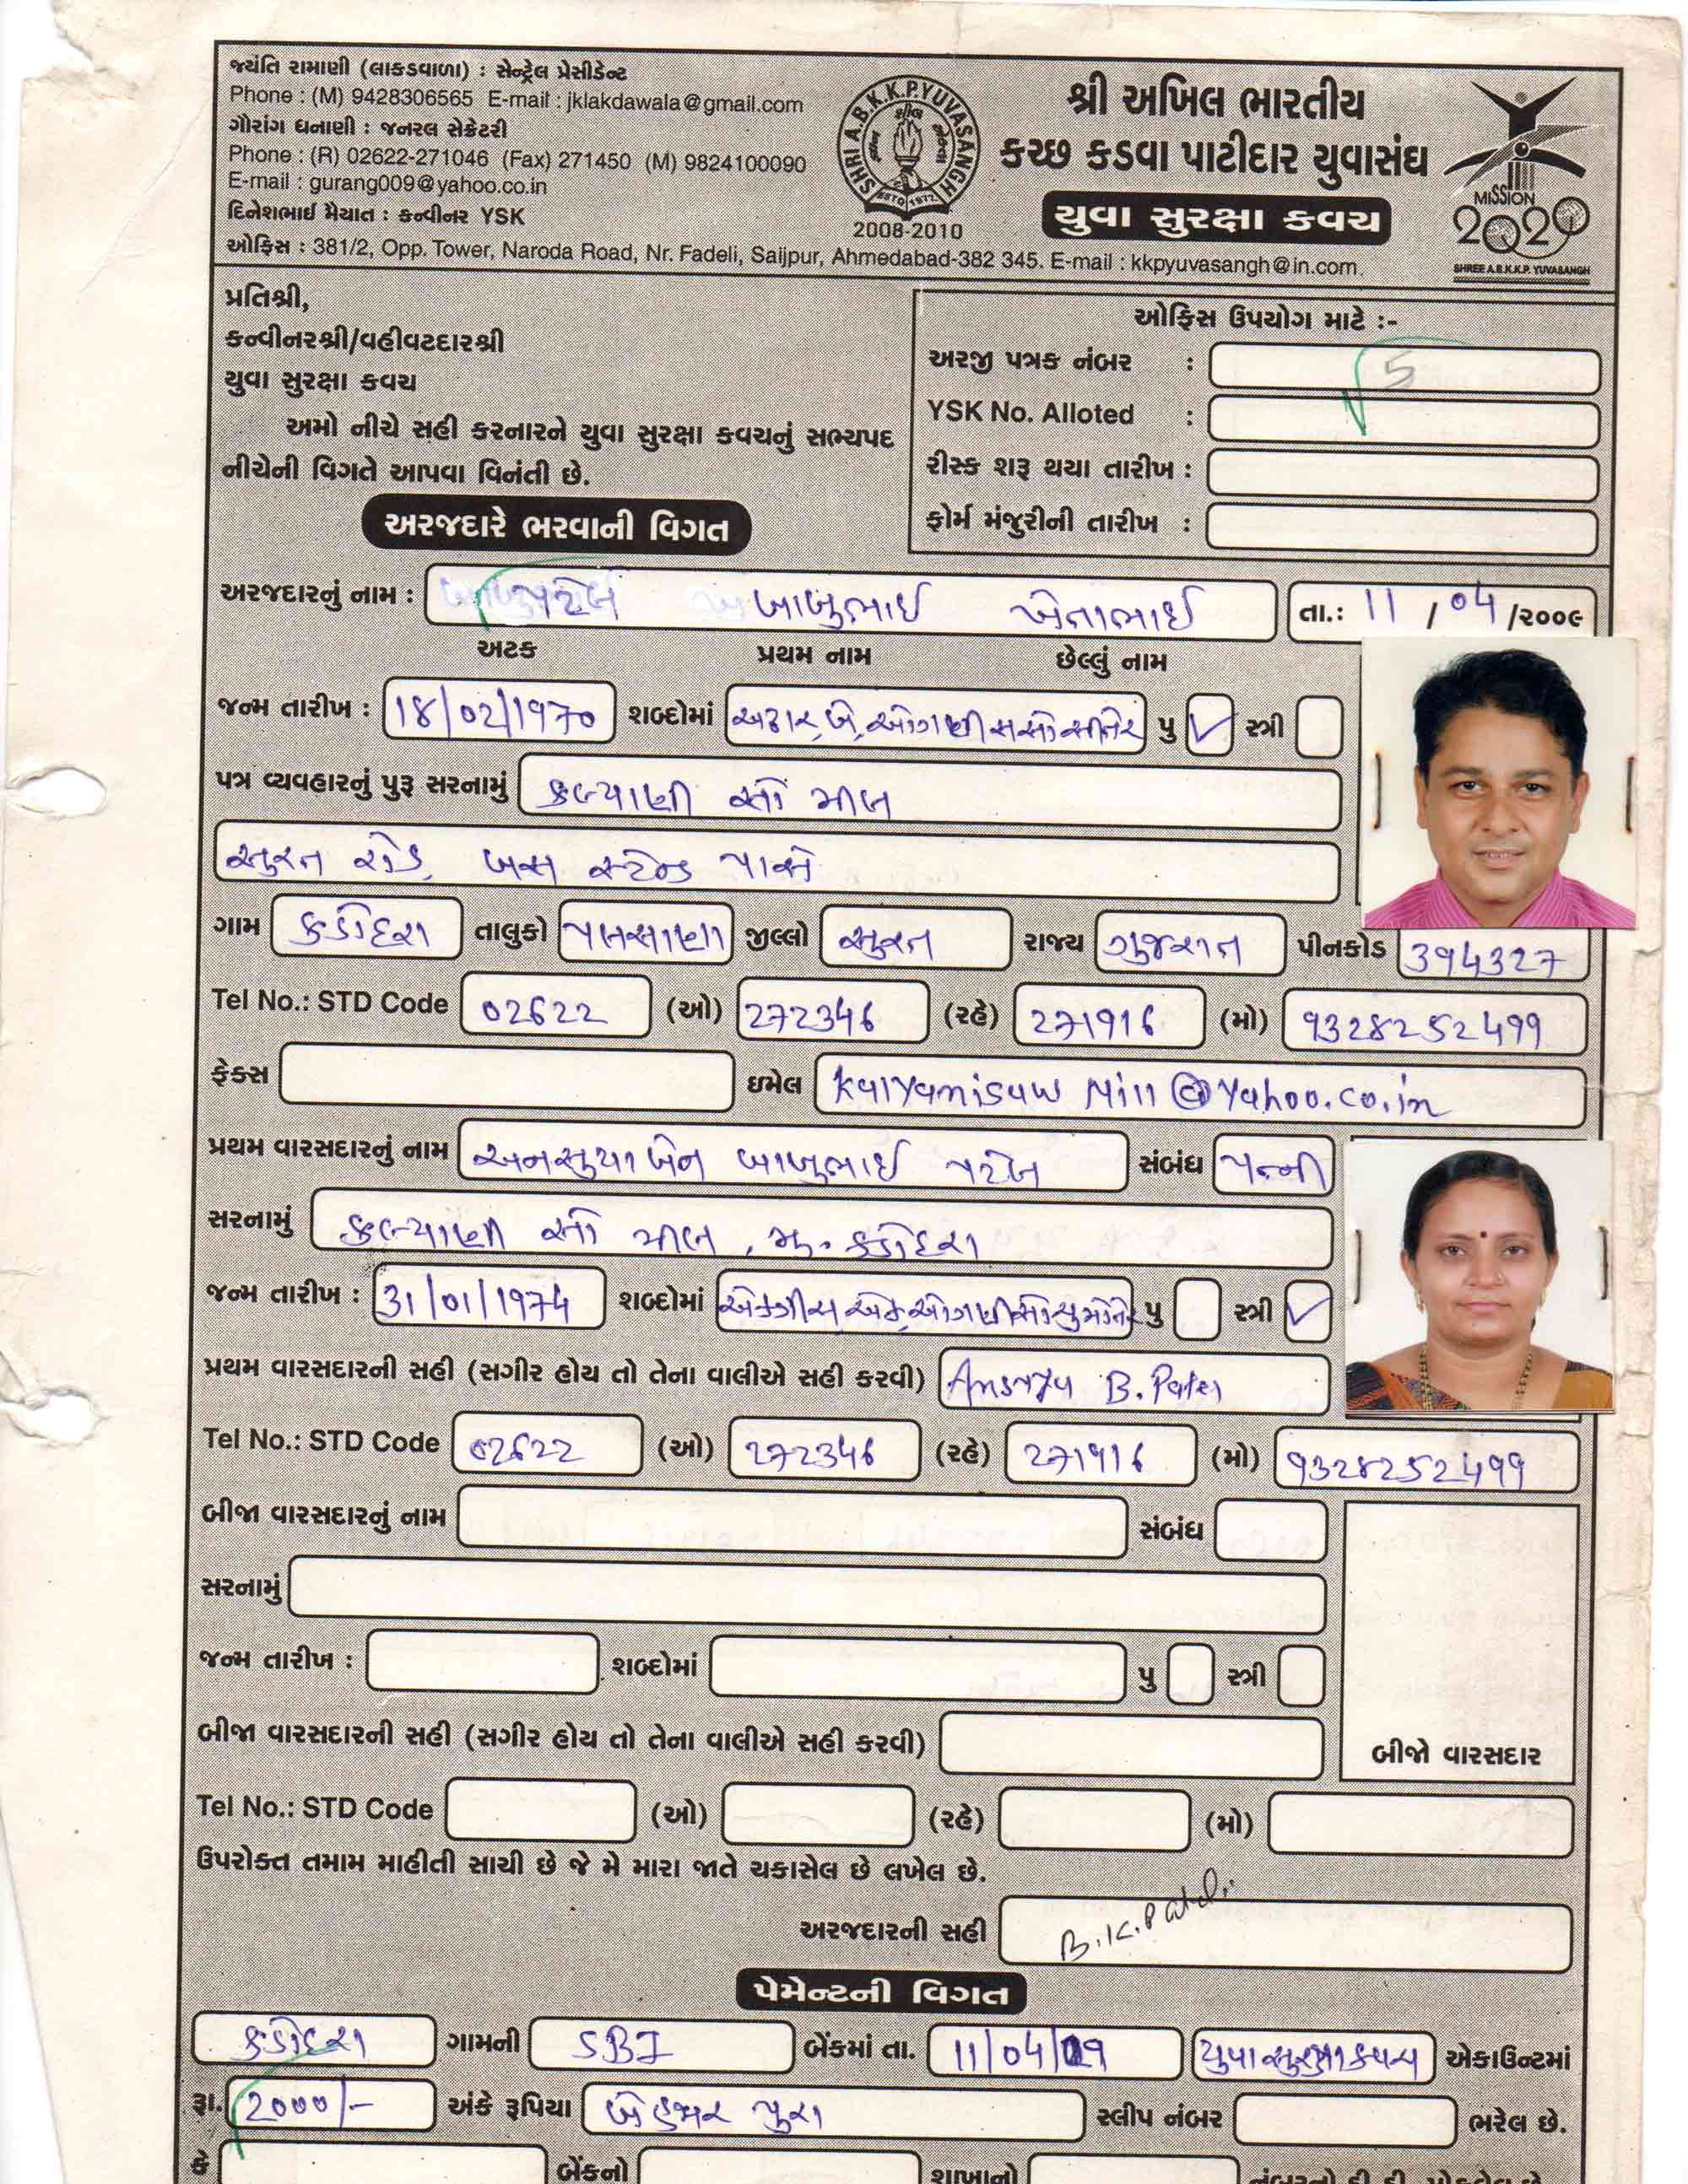 જ્યંતિ રામાણી (લાકડવાળા) : સેન્ટ્રેલ પ્રેસીડેન્ટ
Phone : (M) 9428306565 E-mail : jklakdawala@gmail.com
ગૌરાંગ ધનાણી : જનરલ સેક્રેટરી
Phone : (R) 02622-271046 (Fax) 271450 (M) 9824100090
E-mail : gurang009@yahoo.co.in
દિનેશભાઈ મૈયાત : કન્વીનર YSK
ઓફિસ : 381/2, Opp. Tower, Naroda Road, Nr. Fadeli, Saijpur, Ahmedabad-382 345. E-mail : kkpyuvasangh@in.com.
SHRI A.B.K.K.P. YUVASANGH
ESTD 1972
2008-2010
શ્રી અખિલ ભારતીય
કચ્છ કડવા પાટીદાર યુવાસંઘ
યુવા સુરક્ષા કવચ
MISSION
2020
SHREE A.B.K.K.P. YUVASANGH
પ્રતિશ્રી,
કન્વીનરશ્રી/વહીવટદારશ્રી
યુવા સુરક્ષા કવચ
અમો નીચે સહી કરનારને યુવા સુરક્ષા કવચનું સભ્યપદ
નીચેની વિગતે આપવા વિનંતી છે.
ઓફિસ ઉપયોગ માટે :-
અરજી પત્રક નંબર : 5
YSK No. Alloted :
રીસ્ક શરૂ થયા તારીખ :
ફોર્મ મંજુરીની તારીખ :
અરજદારે ભરવાની વિગત
અરજદારનું નામ : પટેલ બાબુભાઈ ખેતાભાઈ તા.: 11 / 04 /૨૦૦૯
અટક પ્રથમ નામ છેલ્લું નામ
જન્મ તારીખ : 18/02/1970 શબ્દોમાં અઢાર, બે, ઓગણીસસો સીતેર પુ ✓ સ્ત્રી
પત્ર વ્યવહારનું પુરૂ સરનામું કલ્યાણી સો મીલ
સુરત રોડ, બસ સ્ટેન્ડ પાસે
ગામ કડોદરા તાલુકો પલસાણા જીલ્લો સુરત રાજ્ય ગુજરાત પીનકોડ 394327
Tel No.: STD Code 02622 (ઓ) 272346 (રહે) 271916 (મો) 9328252499
ફેક્સ ઇમેલ kalyanisaw Mill @ Yahoo.co.in
પ્રથમ વારસદારનું નામ અનસુયાબેન બાબુભાઈ પટેલ સંબંધ પત્ની
સરનામું કલ્યાણી સો મીલ, મુ. કડોદરા
જન્મ તારીખ : 31/01/1974 શબ્દોમાં એકત્રીસ, એક, ઓગણીસો ચુમોતેર પુ સ્ત્રી ✓
પ્રથમ વારસદારની સહી (સગીર હોય તો તેના વાલીએ સહી કરવી) Ansuya B. Patel
Tel No.: STD Code 02622 (ઓ) 272346 (રહે) 271916 (મો) 9328252499
બીજા વારસદારનું નામ સંબંધ
સરનામું
જન્મ તારીખ : શબ્દોમાં પુ સ્ત્રી
બીજા વારસદારની સહી (સગીર હોય તો તેના વાલીએ સહી કરવી)
બીજો વારસદાર
Tel No.: STD Code (ઓ) (રહે) (મો)
ઉપરોક્ત તમામ માહીતી સાચી છે જે મે મારા જાતે ચકાસેલ છે લખેલ છે.
અરજદારની સહી B.K. Patel
પેમેન્ટની વિગત
કડોદરા ગામની SBI બેંકમાં તા. 11/04/09 યુવા સુરક્ષા કવચ એકાઉન્ટમાં
રૂા. 2000/- અંકે રૂપિયા બે હજાર પુરા સ્લીપ નંબર ભરેલ છે.
કે બેંકનો શાખાનો